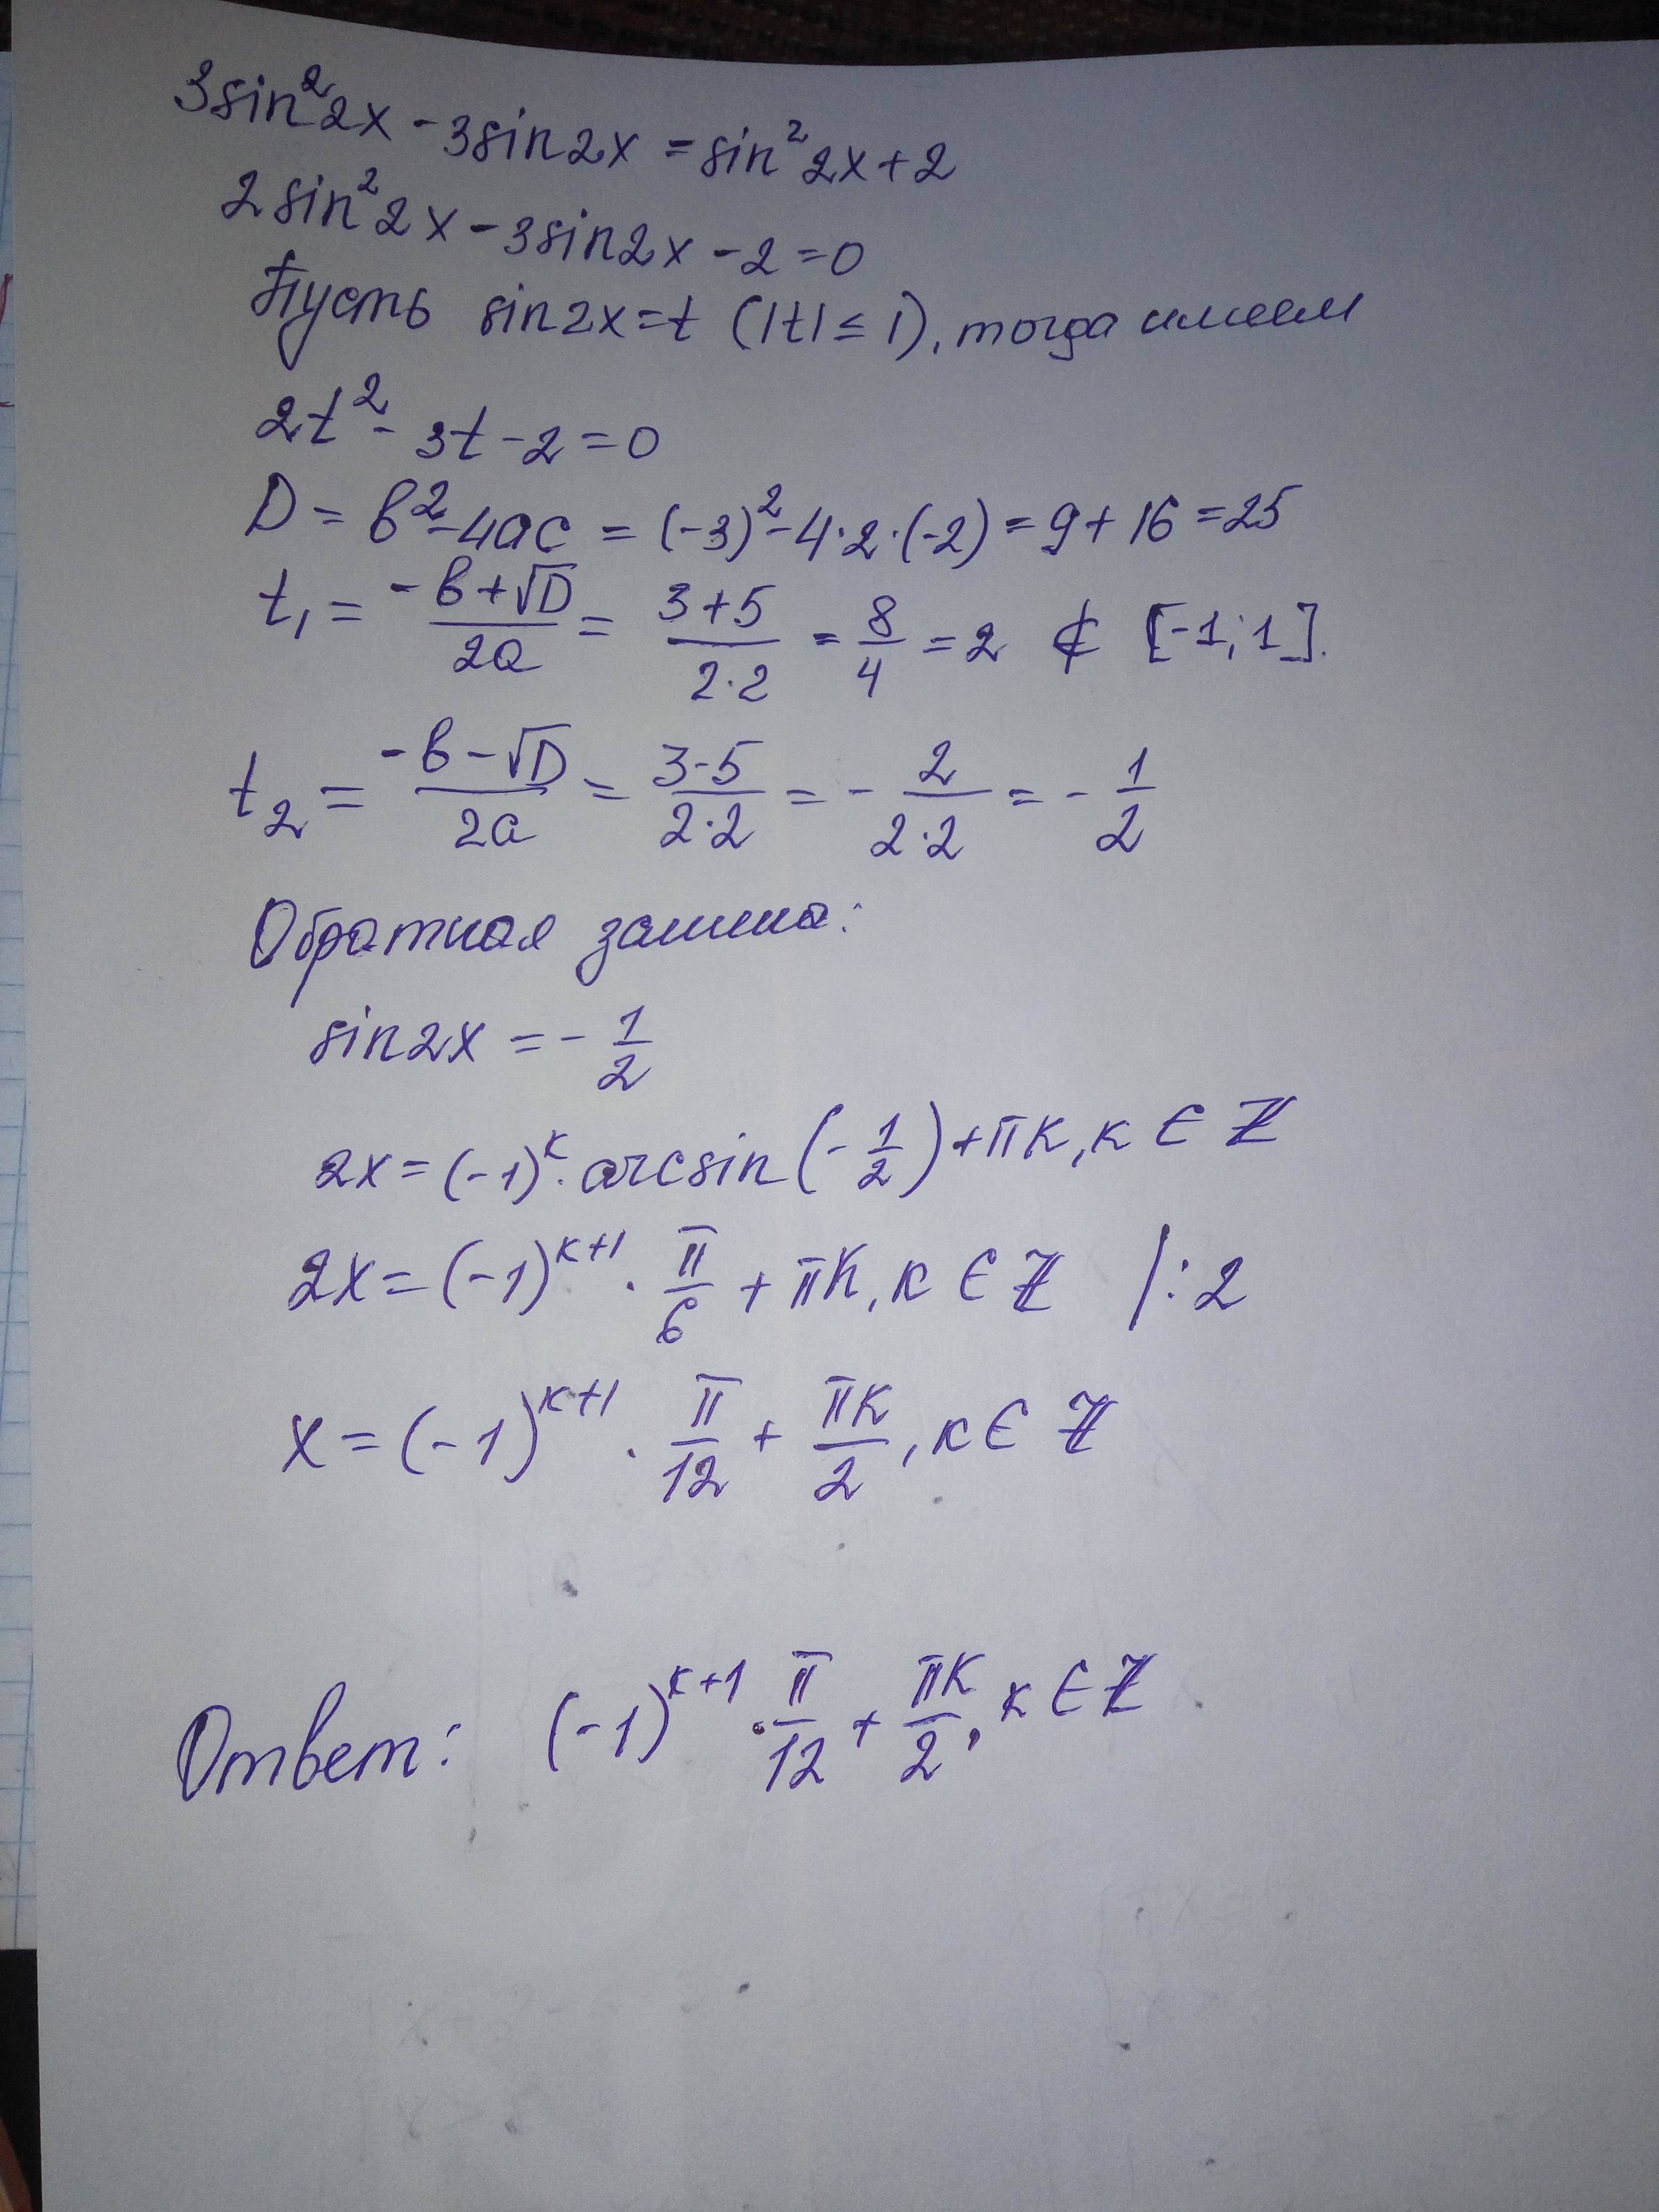 3sin²2x - 3sin2x = sin²2x + 2
2sin²2x - 3sin2x - 2 = 0
Пусть sin2x = t (|t| ≤ 1), тогда имеем
2t² - 3t - 2 = 0
D = b² - 4ac = (-3)² - 4·2·(-2) = 9 + 16 = 25
t₁ = (-b + √D)/(2a) = (3+5)/(2·2) = 8/4 = 2 ⊄ [-1; 1].
t₂ = (-b - √D)/(2a) = (3-5)/(2·2) = - 2/(2·2) = - 1/2
Обратная замена:
sin2x = - 1/2
2x = (-1)ᵏ · arcsin(- 1/2) + πk, k ∈ ℤ
2x = (-1)ᵏ⁺¹ · π/6 + πk, k ∈ ℤ |:2
x = (-1)ᵏ⁺¹ · π/12 + πk/2, k ∈ ℤ
Ответ: (-1)ᵏ⁺¹ · π/12 + πk/2, k ∈ ℤ.